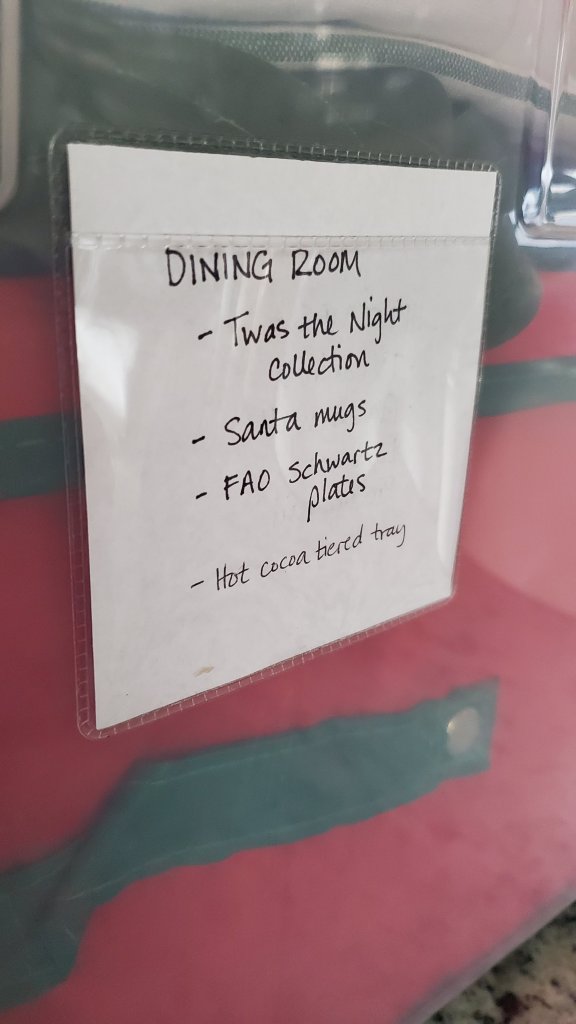 DINING ROOM
- Twas the Night
Collection
- Santa mugs
- FAO Schwartz
plates
- Hot cocoa tiered tray